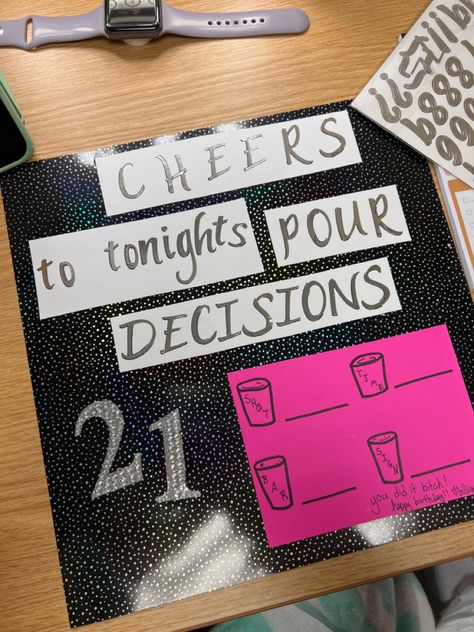 CHEERS
to tonights POUR
DECISIONS
21
SHOT
TIME
BAR
SIGN
you did it bitch!
happy birthday!!